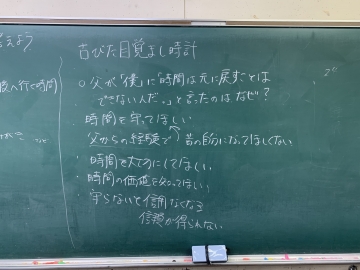 古びた目覚まし時計
○父が「僕」に「時間は元に戻すことは
できない人だ。」と言ったのはなぜ?
時間を守ってほしい
父からの経験で昔の自分になってほしくない
・時間を大切にしてほしい
・時間の価値を知ってほしい
・守らないと信用なくなる
信頼が得られない
えよう
へ行く時間)